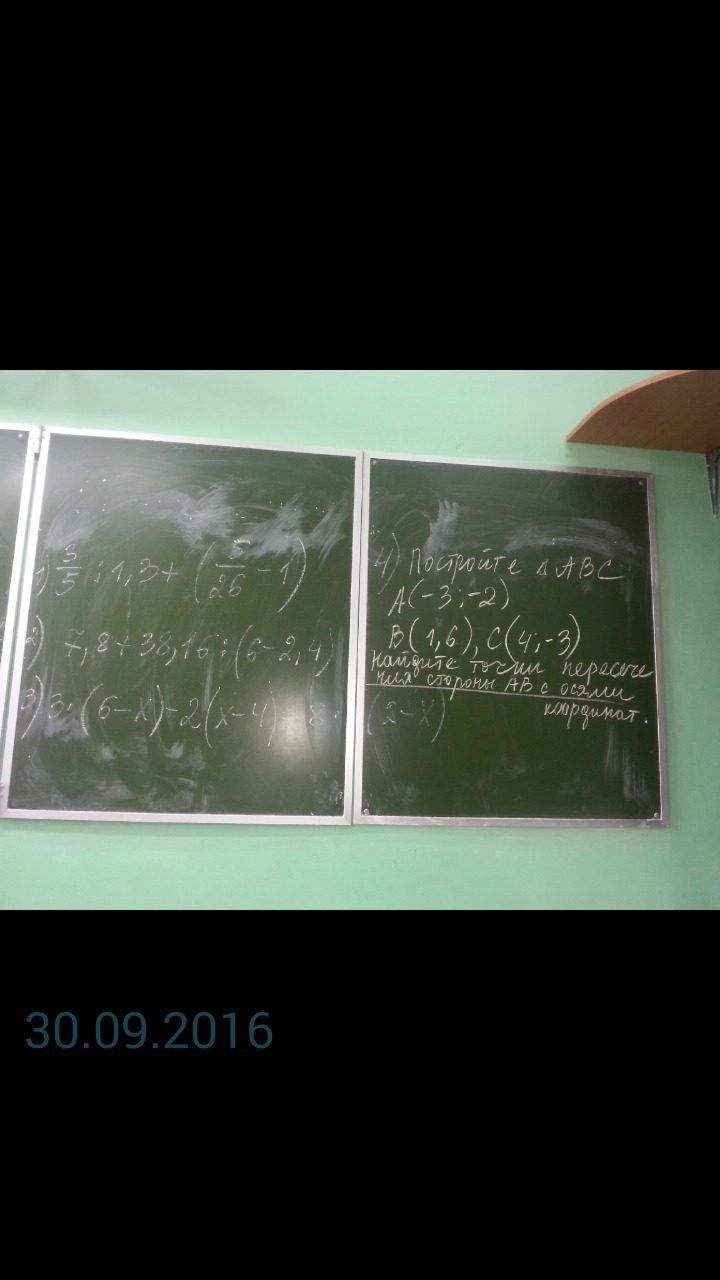 1) 3/5 : 1,3 + (5/26 - 1)
2) 7,8 + 38,16 : (6 - 2,4)
3) 3 · (6 - x) - 2(x - 4) 8
(2 - x)
4) Постройте △ ABC
A(-3; -2)
B(1,6), C(4;-3)
Найдите точки пересече
ния стороны AB с осями
координат.
30.09.2016